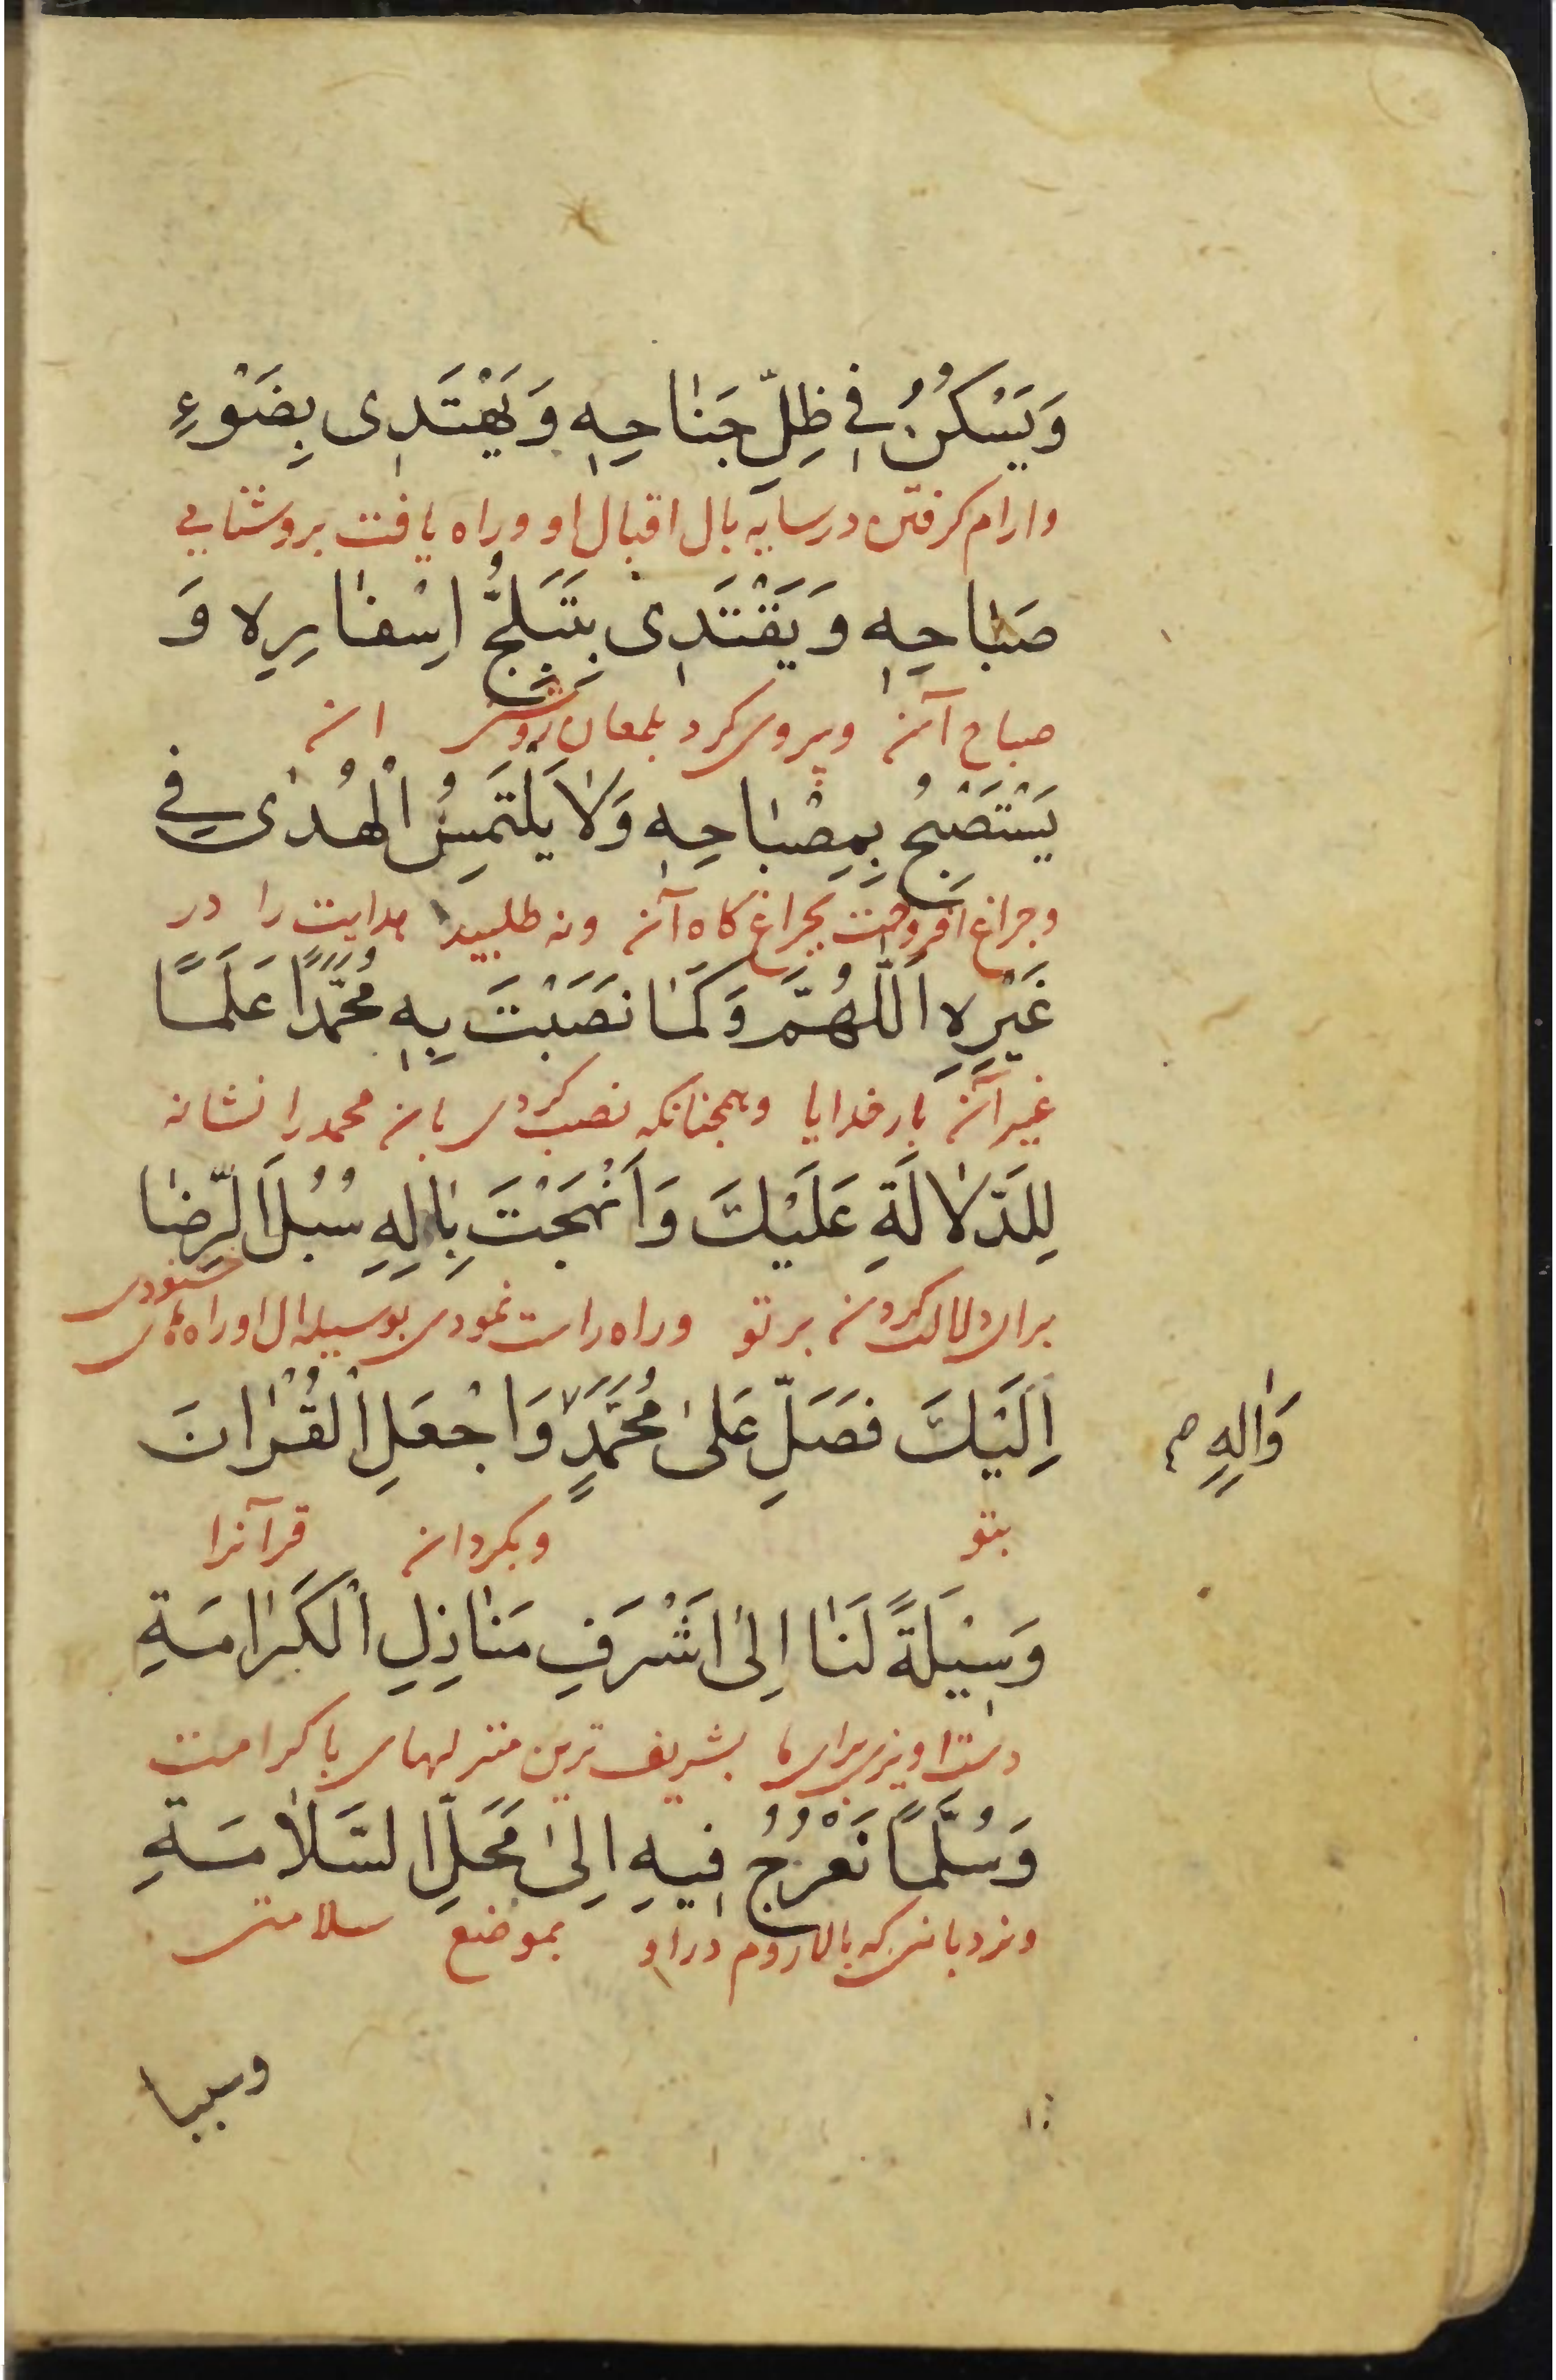 وَيَسْكُنُ في ظِلِّ جَنٰاحِهِ وَيَهْتَدى بِضَوْءِ
وارام کرفتن در سایه بال اقبال او وراه یافت بروشنایی
صَبٰاحِهِ وَيَقْتَدى بِتَبَلُّجِ اِسْفٰارِهِ وَ
صباح آن وپیروی کرد بلمعان روشنی ان
يَسْتَصْبِحُ بِمِصْبٰاحِهِ وَلٰا يَلْتَمِسُ الْهُدٰى في
وچراغ افروخت بچراغ کاه آن ونه طلبید هدایت را در
غَيْرِهِ اَللّٰهُمَّ وَكَمٰا نَصَبْتَ بِهِ مُحَمَّدًا عَلَمًا
غیر آن بار خدایا وهمچنانکه نصب کردی بان محمد را نشانه
لِلدَّلٰالَةِ عَلَيْكَ وَاَنْهَجْتَ بِاٰلِهِ سُبُلَ الرِّضٰا
برای دلالت کردن بر تو وراه راست نمودی بوسیله ال او راههای خشنودی
اِلَيْكَ فَصَلِّ عَلىٰ مُحَمَّدٍ وَاجْعَلِ الْقُرْاٰنَ
وَاٰلِهِ م
بتو وبکردان قرآنرا
وَسِيْلَةً لَنٰا اِلىٰ اَشْرَفِ مَنٰازِلِ الْكَرٰامَةِ
دستاویزی برای ما بشریف ترین منزلهای با کرامت
وَسُلَّمًا نَعْرُجُ فيهِ اِلىٰ مَحَلِّ السَّلٰامَةِ
ونردبانی که بالا رویم در او بموضع سلامتی
وسببا